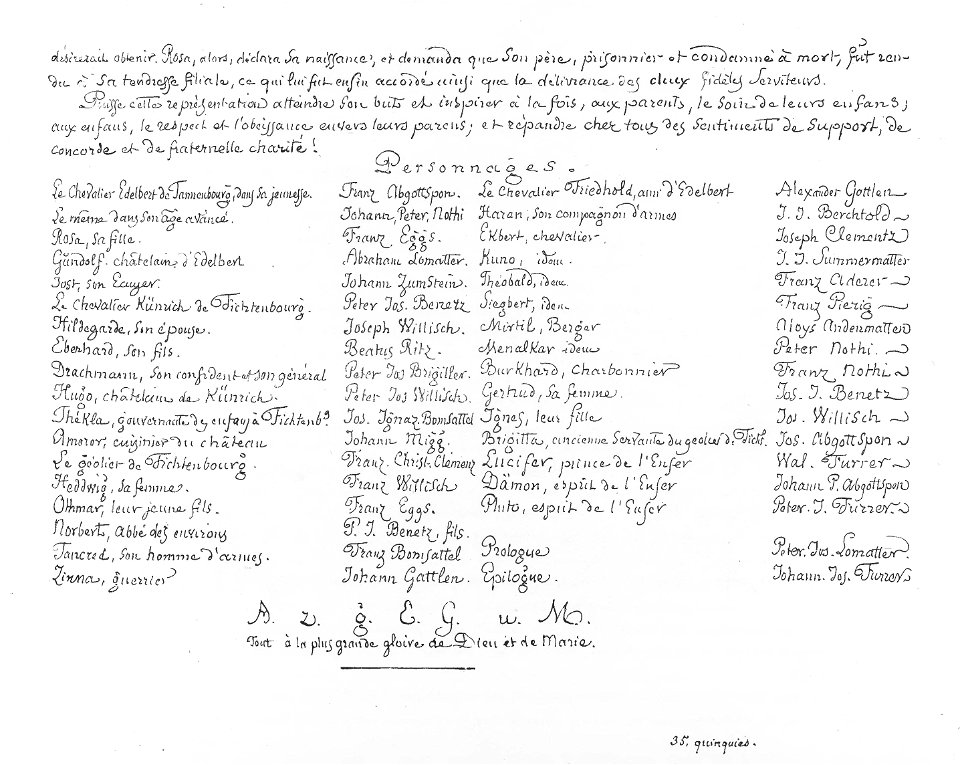 désirerait obtenir. Rosa, alors, déclara sa naissance, et demanda que son père, prisonnier et condamné à mort, fût ren-
du à sa tendresse filiale, ce qui lui fut enfin accordé ainsi que la délivrance des deux fidèles serviteurs.
Puisse cette représentation atteindre son buts et inspirer à la fois, aux parents, le soin de leurs enfans;
aux enfans, le respect et l'obéissance envers leurs parens; et répandre chez tous des sentiments de support, de
concorde et de fraternelle charité!
Personnages.
Le Chevalier Edelbert de Tannenbourg, dans sa jeunesse. Franz Abgottspon. Le Chevalier Friedhold, ami d'Edelbert Alexander Gottlen
Le même dans son âge avancé. Johann, Peter, Nothi Haran, son compagnon d'armes J. J. Berchtold
Rosa, sa fille. Franz Eggs. Ekbert, chevalier. Joseph Clementz
Gundolf. châtelain d'Edelbert Abraham Lomatter. Kuno, idem. J. J. Summermatter
Jost, son Ecuyer. Johann Zumstein. Théobald, idem Franz Anderer
Le Chevalier Künrich de Fichtenbourg. Peter Jos. Benetz Siegbert, idem Franz Pierig
Hildegarde, son épouse. Joseph Willisch. Mirtil, Berger Aloys Andenmatten
Eberhard, son fils. Beatus Ritz. Menalkar idem Peter Nothi.
Drachmann, son confident et son général Peter Jos Brigiller. Burkhard, Charbonnier Franz Nothi
Hugo, châtelain de Künrich. Peter Jos Willisch. Gertrud, sa femme. Jos. J. Benetz
Thékla, gouvernante des enfans à Fichtenbg. Jos. Ignaz Bomsattel Ignes, leur fille Jos. Willisch
Amoror, cuisinier du château Johann Migg. Brigitta, ancienne servante du geolier de Ficht. Jos. Abgottspon
Le géolier de Fichtenbourg. Franz. Christ. Clemenz Lucifer, prince de l'Enfer Wal. Furrer
Heddwig, sa femme. Franz Willisch Dâmon, esprit de l'Enfer Johann P. Abgottspon
Othmar, leur jeune fils. Franz Eggs. Pluto, esprit de l'Enfer Peter. J. Furrer.
Norbert, Abbé des environs P. J. Benetz, fils.
Tancred, son homme d'armes. Franz Bomsattel Prologue Peter. Jos. Lomatter
Zinna, guerrier Johann Gattlen. Epilogue. Johann. Jos. Furrer
A. z. g. E. G. u. M.
Tout à la plus grande gloire de Dieu et de Marie.
35, quinquies.